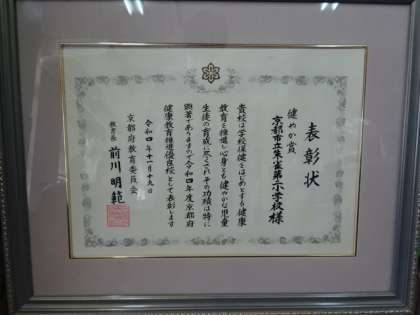 表彰状
健やか賞
京都市立朱雀第六小学校様
貴校は学校保健をはじめとする健康
教育を推進し心身とも健やかな児童
生徒の育成に尽くされその功績は特に
顕著でありますので令和四年度京都府
健康教育推進優良校として表彰します
令和四年十一月十九日
京都府教育委員会
教育長 前川明範